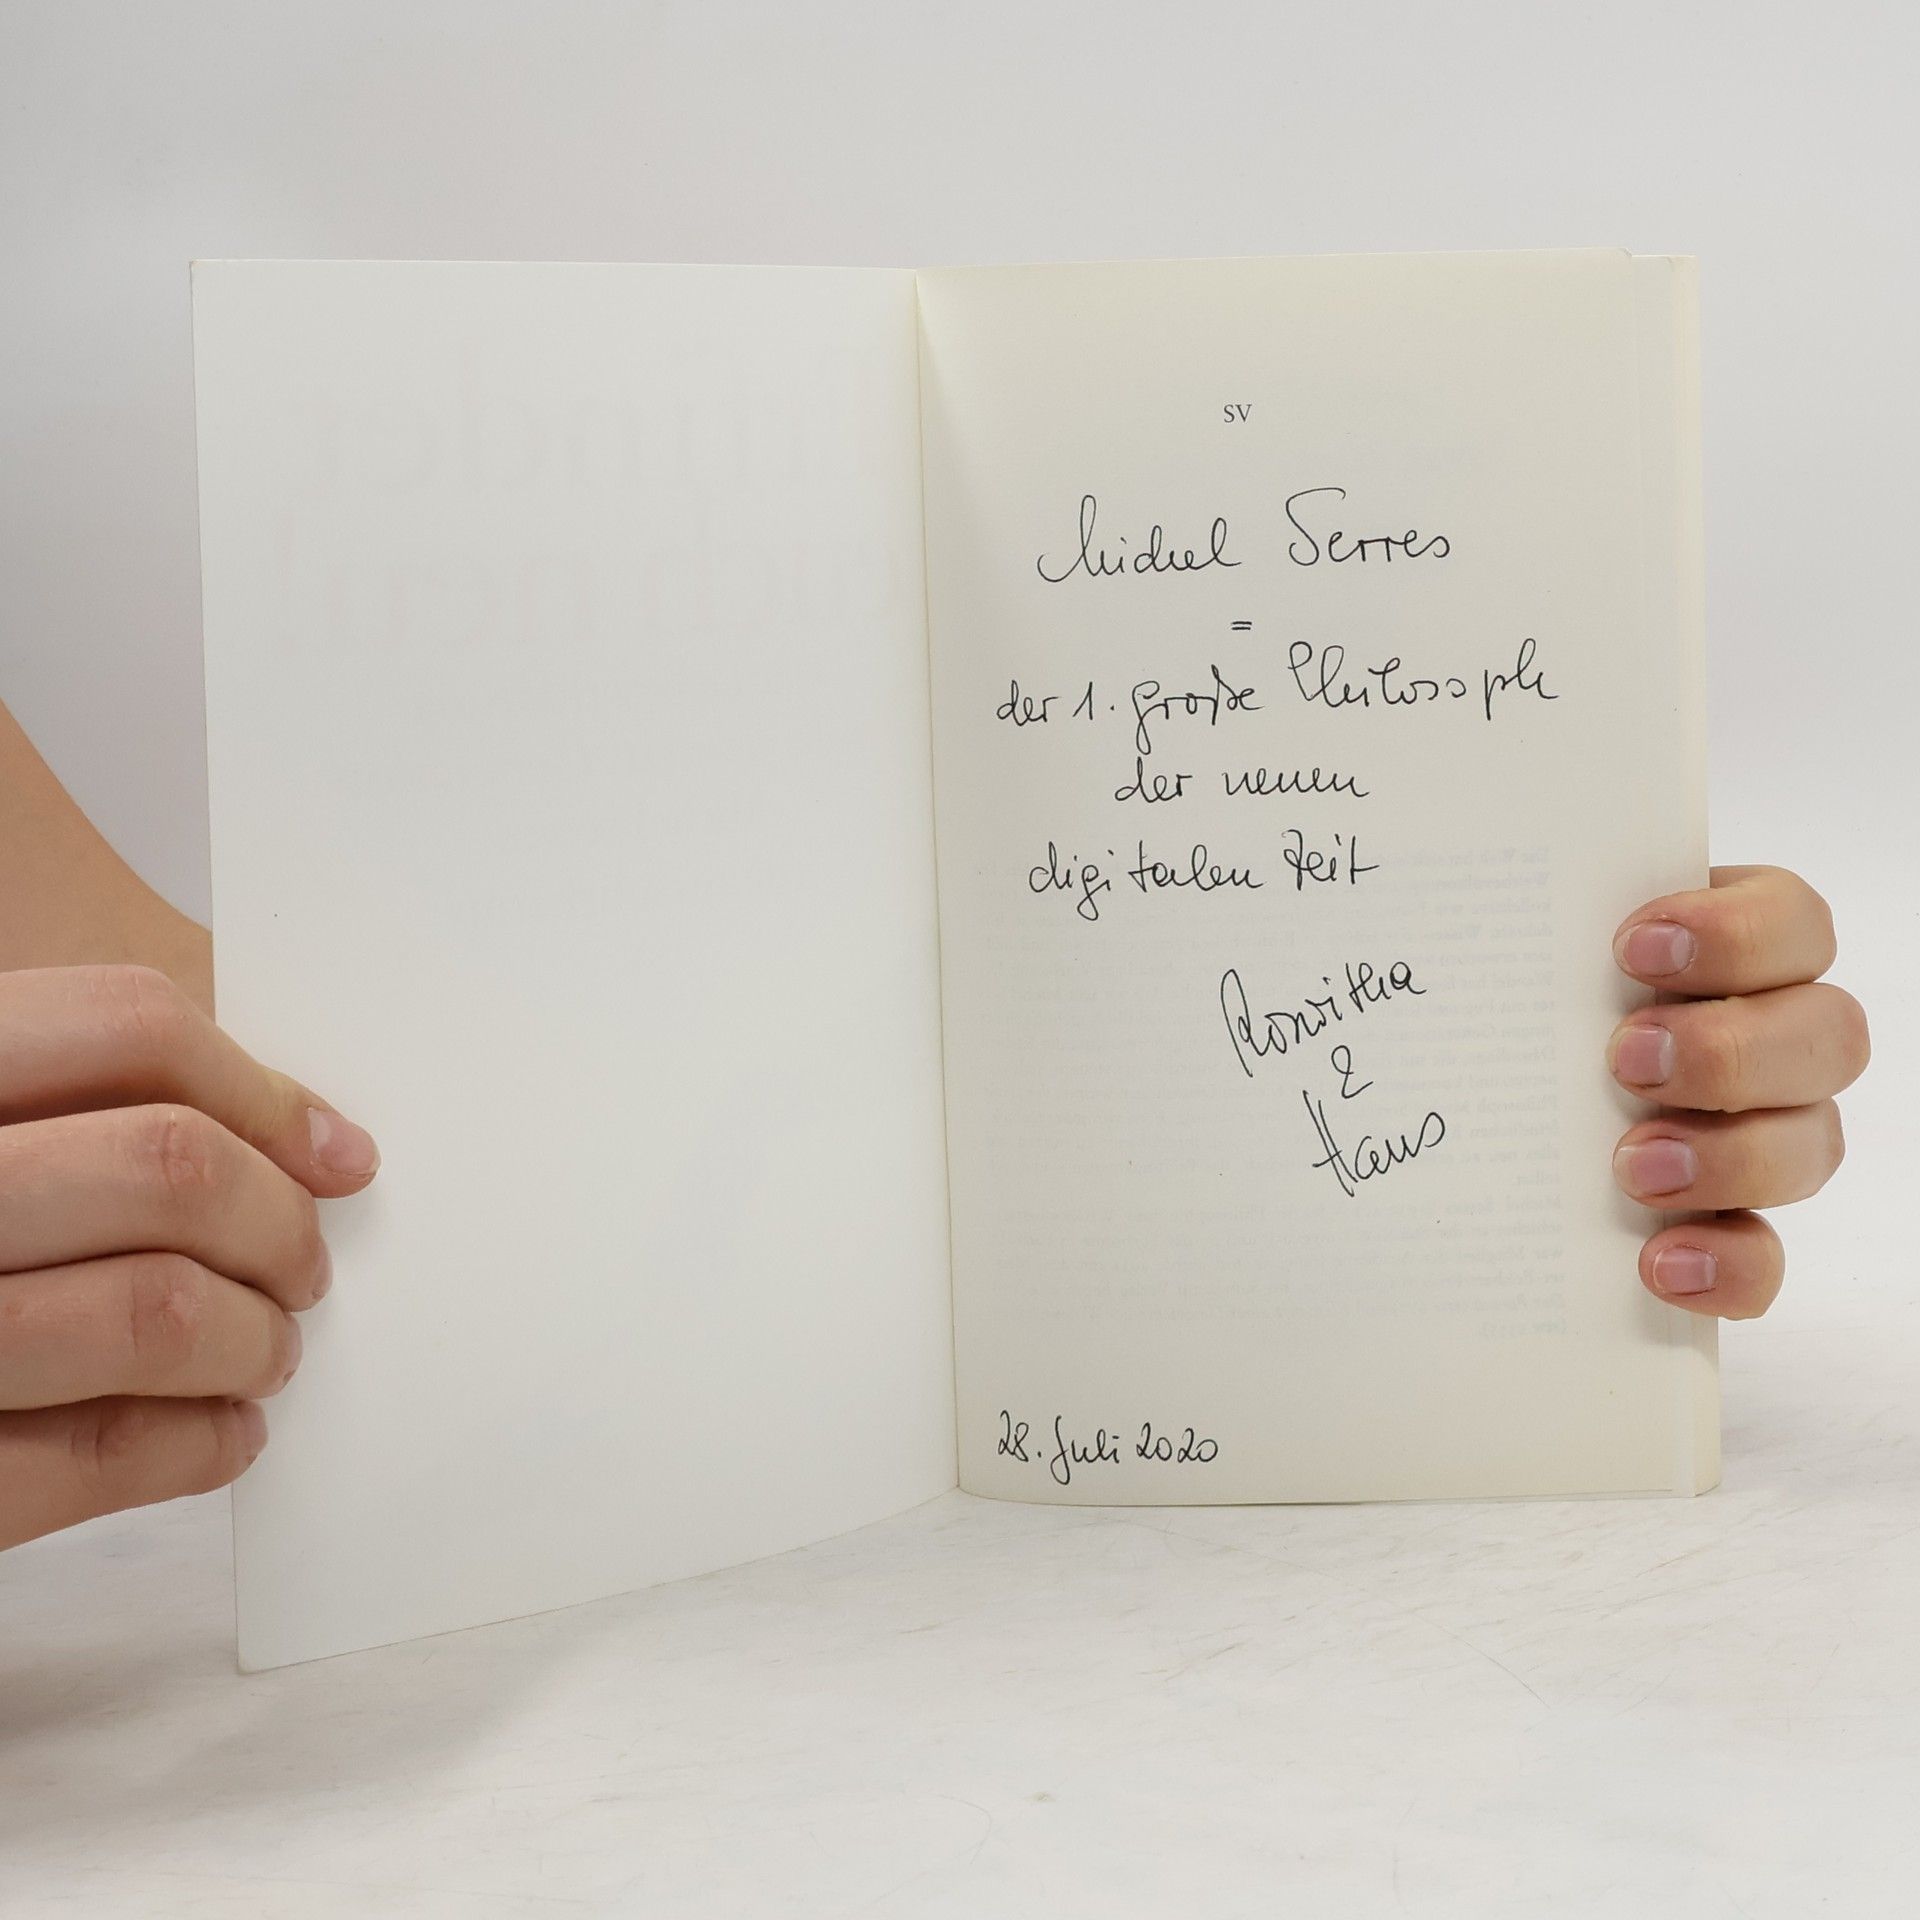 SV
Michel Serres
=
der 1. große Philosoph
der neuen
digitalen Zeit
Roswitha
&
Hans
28. Juli 2020